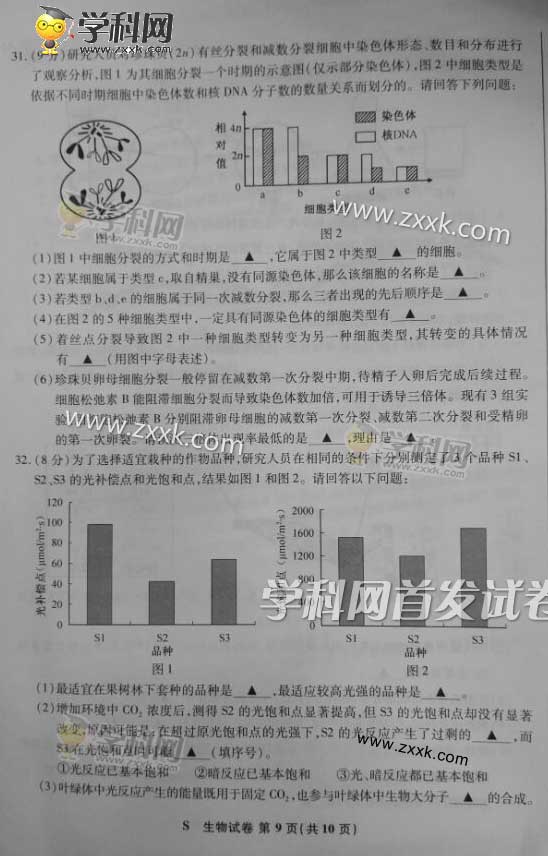 31.(9分)研究人员对珍珠贝(2n)有丝分裂和减数分裂细胞中染色体形态、数目和分布进行
了观察分析,图1为其细胞分裂一个时期的示意图(仅示部分染色体),图2中细胞类型是
依据不同时期细胞中染色体数和核DNA分子数的数量关系而划分的。请回答下列问题:
图1
相对值
4n
2n
0
染色体
核DNA
a b c d e
细胞类
图2
(1)图1中细胞分裂的方式和时期是 ▲ ,它属于图2中类型 ▲ 的细胞。
(2)若某细胞属于类型c,取自精巢,没有同源染色体,那么该细胞的名称是 ▲ 。
(3)若类型b、d、e的细胞属于同一次减数分裂,那么三者出现的先后顺序是 ▲ 。
(4)在图2的5种细胞类型中,一定具有同源染色体的细胞类型有 ▲ 。
(5)着丝点分裂导致图2中一种细胞类型转变为另一种细胞类型,其转变的具体情况
有 ▲ (用图中字母表述)。
(6)珍珠贝卵母细胞分裂一般停留在减数第一次分裂中期,待精子入卵后完成后续过程。
细胞松弛素B能阻滞细胞分裂而导致染色体数加倍,可用于诱导三倍体。现有3组实
验 B分别阻滞卵母细胞的减数第一次分裂、减数第二次分裂和受精卵
的第一次卵裂。 出现率最低的是 ▲ ,理由是 ▲
32.(8分)为了选择适宜栽种的作物品种,研究人员在相同的条件下分别测定了3个品种S1、
S2、S3的光补偿点和光饱和点,结果如图1和图2。请回答以下问题:
光补偿点(μmol/m²·s)
120
100
80
60
40
20
0
S1 S2 S3
品种
图1
2000
1600
1200
800
400
0
S1 S2 S3
品种
图2
(1)最适宜在果树林下套种的品种是 ▲ ,最适应较高光强的品种是 ▲ 。
(2)增加环境中CO₂浓度后,测得S2的光饱和点显著提高,但S3的光饱和点却没有显著
改变,原因可能是:在超过原光饱和点的光强下,S2的光反应产生了过剩的 ▲ ,而
S3在光饱和点时可能 ▲ (填序号)。
①光反应已基本饱和 ②暗反应已基本饱和 ③光、暗反应都已基本饱和
(3)叶绿体中光反应产生的能量既用于固定CO₂,也参与叶绿体中生物大分子 ▲ 的合成。
S 生物试卷 第9页(共10页)
学科网
zxxk.com
www.zxxk.com
学科网首发试卷